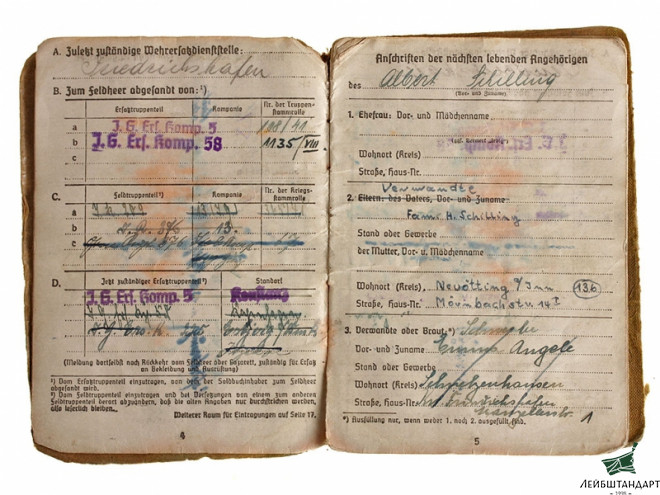 A. Zuletzt zuständige Wehrersatzdienststelle:
Friedrichshafen
B. Zum Feldheer abgesandt von: ¹)
Ersatztruppenteil Kompanie Nr. der Truppenstammrolle
a J. G. Ers. Komp. 5 108/41
b J. G. Ers. Komp. 58 1135/VIII
c
C. Feldtruppenteil ²) Kompanie Nr. der Kriegsstammrolle
a
b J. Gr. 376 13.
c
D. Jetzt zuständiger Ersatztruppenteil ²) Standort
J. G. Ers. Komp. 5 Konstanz
(Meldung dortselbst nach Rückkehr vom Feldheer oder Lazarett, zuständig für Ersatz an Bekleidung und Ausrüstung)
¹) Vom Ersatztruppenteil einzutragen, von dem der Soldbuchinhaber zum Feldheer abgesandt wird.
²) Vom Feldtruppenteil einzutragen und bei Versetzungen von einem zum anderen Feldtruppenteil derart abzuändern, daß die alten Angaben nur durchstrichen werden, also leserlich bleiben.
Weiterer Raum für Eintragungen auf Seite 17.
4
Anschriften der nächsten lebenden Angehörigen
des Albert Schilling
(Vor- und Zuname)
1. Ehefrau: Vor- und Mädchenname
(ggf. Vermerk „ledig")
Wohnort (Kreis)
Straße, Haus-Nr.
Verwandte
2. Eltern: des Vaters, Vor- und Zuname
Fam. H. Schilling
Stand oder Gewerbe
der Mutter, Vor- u. Mädchenname
Wohnort (Kreis) Neuötting a/Inn 136
Straße, Haus-Nr. Mörnbachstr 14 I
3. Verwandte oder Braut: *) Schwester
Vor- und Zuname Emma Angele
Stand oder Gewerbe
Wohnort (Kreis)
Straße, Haus-Nr.
*) Ausfüllung nur, wenn weder 1. noch 2. ausgefüllt sind.
5
ЛЕЙБШТАНДАРТ